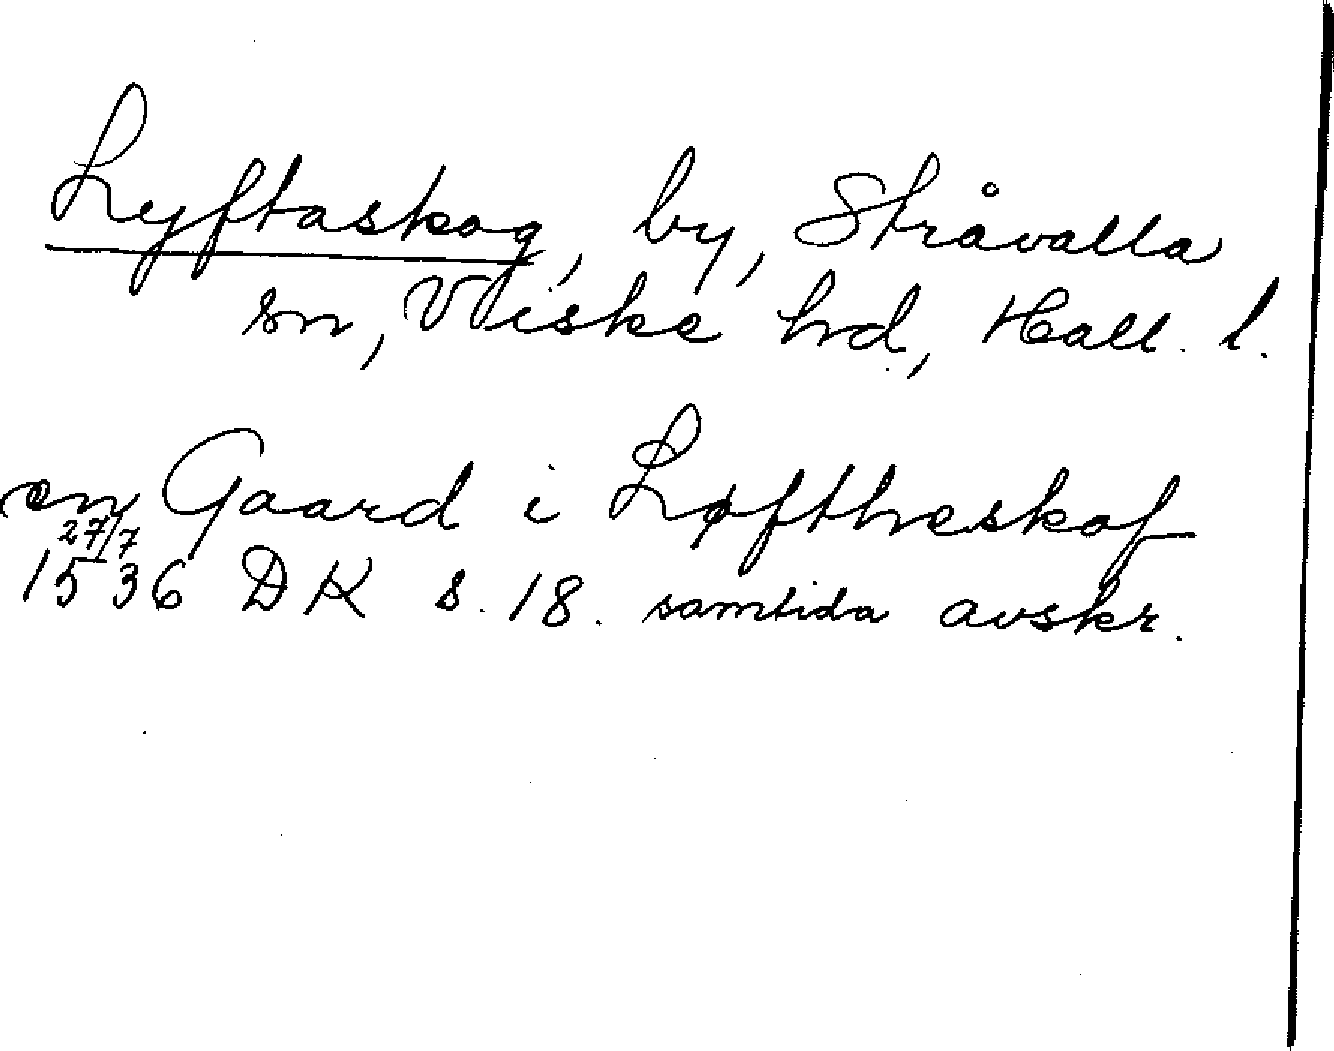 Lyftaskog, by, Stråvalla
sn, Viske hd, Hall. l.
en Gaard i Løftheskof
27/7
1536 DK s. 18. samtida avskr.